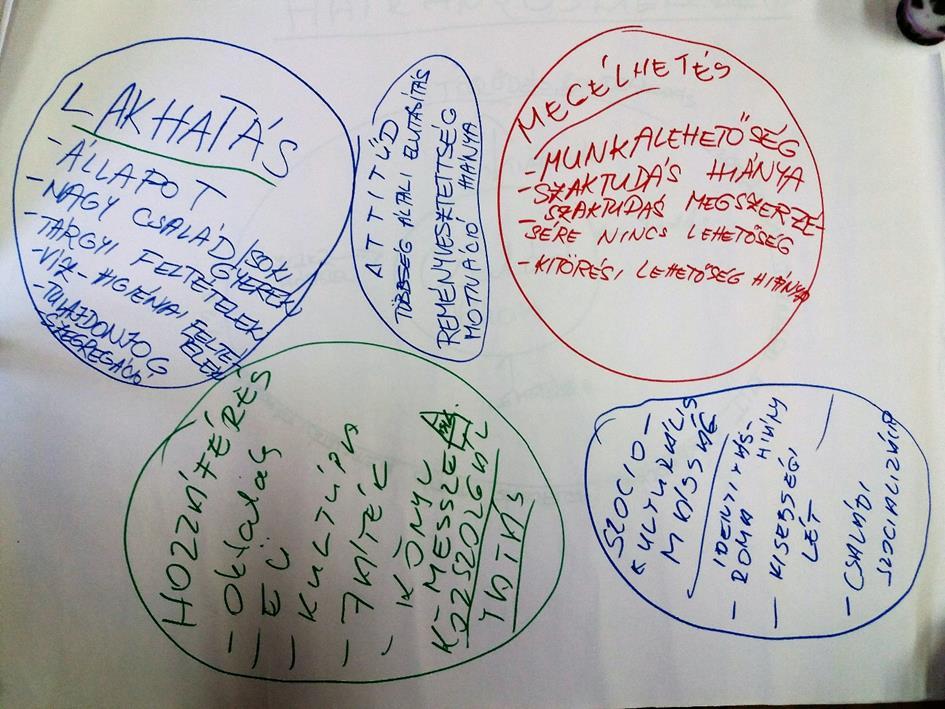 LAKHATÁS
- ÁLLAPOT
- NAGY CSALÁD/SOK
GYEREK
- TÁRGYI FELTÉTELEK
- VÍZ- HIGIÉNIAI FELTÉ
TELEK
- TULAJDONJOG
SZEGREGÁCIÓ
ATTITŰD
TÖBBSÉG ÁLTALI ELUTASÍTÁS
REMÉNYVESZTETTSÉG
MOTIVÁCIÓ HIÁNYA
MEGÉLHETÉS
- MUNKALEHETŐSÉG
- SZAKTUDÁS HIÁNYA
- SZAKTUDÁS MEGSZERZÉ-
SÉRE NINCS LEHETŐSÉG
- KITÖRÉSI LEHETŐSÉG HIÁNYA
HOZZÁFÉRÉS
- Oktatás
- EÜ
- KULTÚRA
- JÁTÉK
- KÖNYV
K-MESSZE
KÖZSZOLGÁL
TATÁS
SZOCIO-
KULTURÁLIS
MÁSSÁG
- IDENTITÁS-
HIÁNY
ROMA
- KISEBBSÉGI
LÉT
- CSALÁDI
SZOCIALIZÁCIÓ